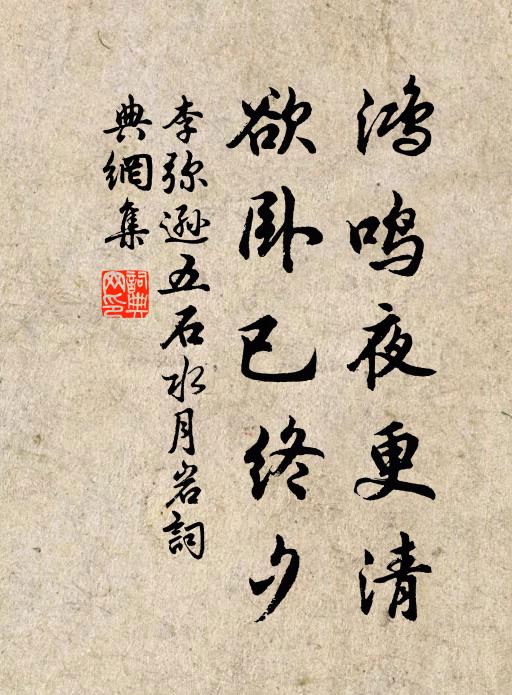 鸿鸣夜更清
欲卧已终夕
李弥逊五石水月岩詞
典網集
詞典网印